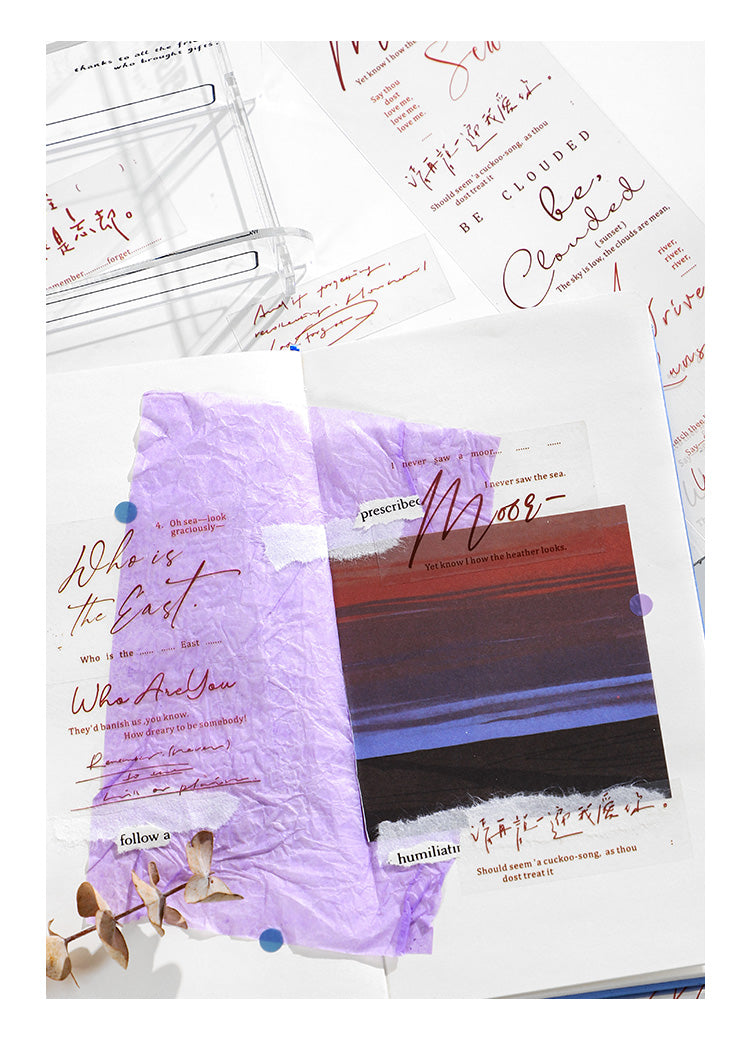 thanks to all the
who brought gifts.
是忘却。
forget
And if forgetting,
Yet know I how the
Sea
Say thou
dost
love me,
love me,
love me,
請再說一遍我愛你。
Should seem 'a cuckoo-song, as thou
dost treat it
BE CLOUDED
be,
Clouded
(sunset)
The sky is low, the clouds are mean,
river,
river,
river,
I never saw a moor.... ...... ......
I never saw the sea.
prescribed
Moor—
Yet know I how the heather looks.
4. Oh sea—look
graciously—
Who is
the East.
Who is the ...... ...... East ......
Who Are You
They'd banish us ,you know.
How dreary to be somebody!
Remember (never)
follow a
humiliatin
請再說一遍我愛你。
Should seem 'a cuckoo-song, as thou
dost treat it